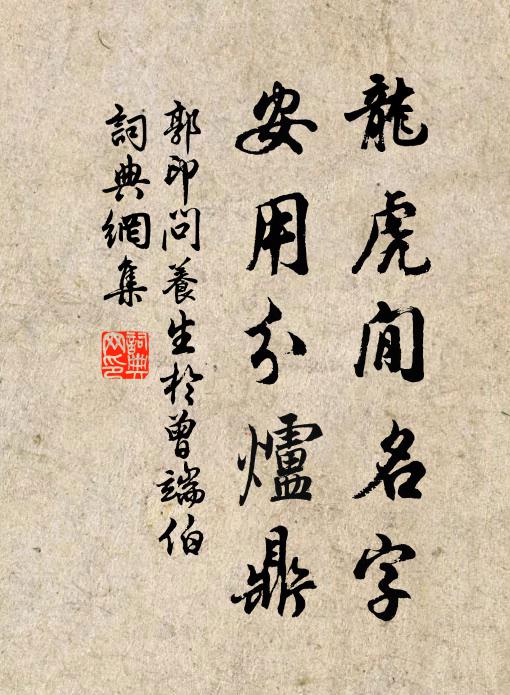 龍虎閒名字
安用分爐鼎
郭印問養生於曾端伯
詞典網集
詞典网印